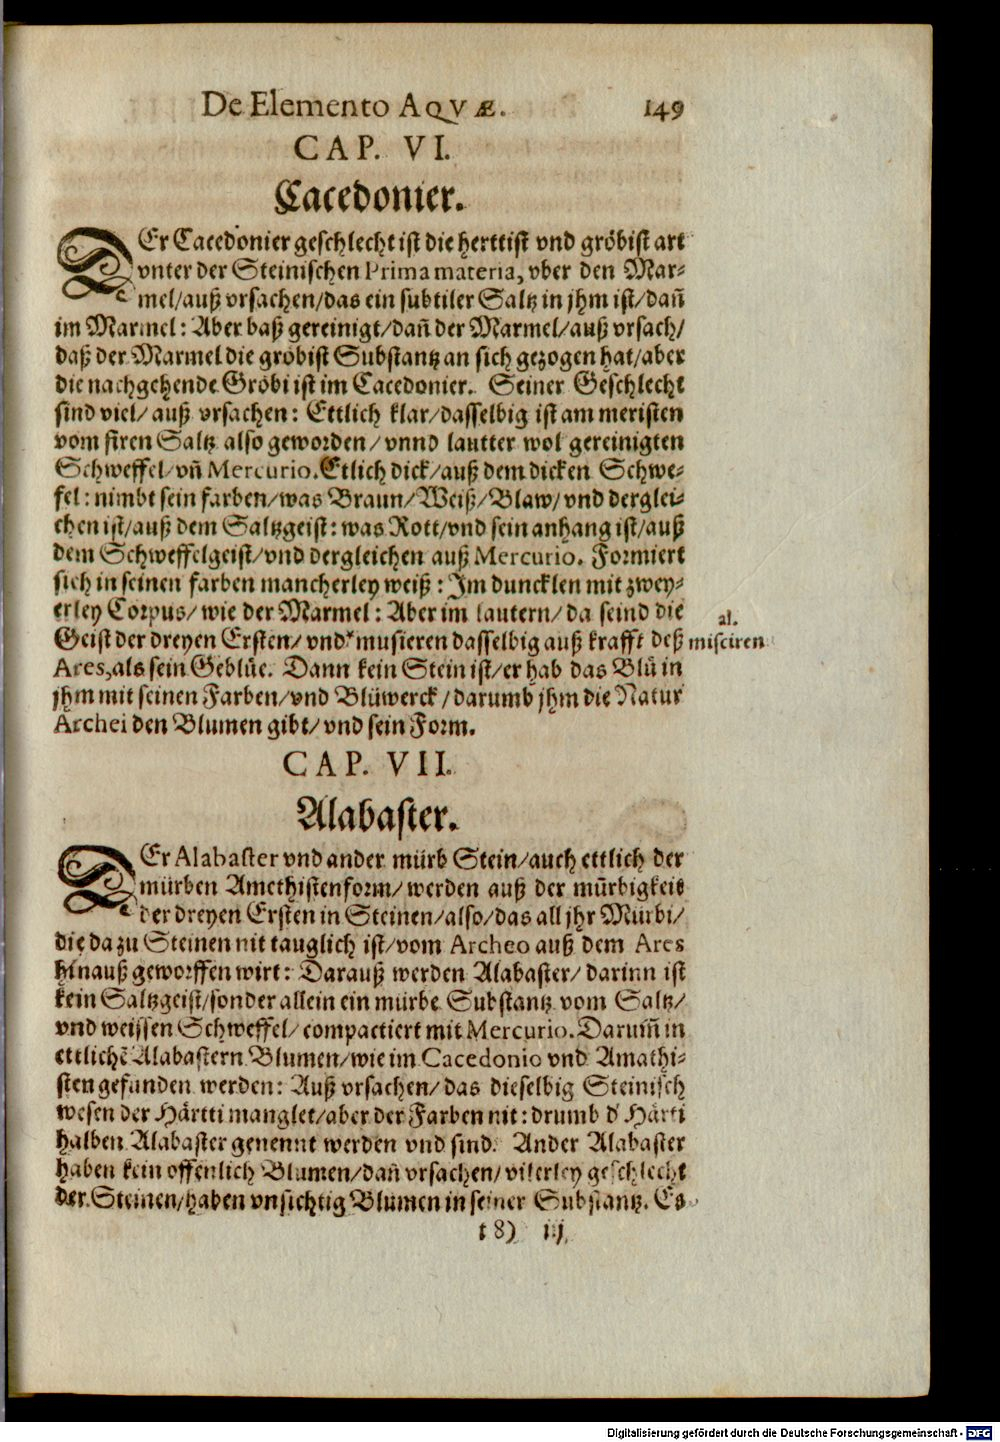 De Elemento AQVÆ. 149
CAP. VI.
Cacedonier.
DEr Cacedonier geschlecht ist die herttist vnd gröbist art
vnter der Steinischen Prima materia, vber den Mar-
mel/auß vrsachen/das ein subtiler Saltz in jhm ist/dañ
im Marmel: Aber baß gereinigt/dañ der Marmel/auß vrsach/
daß der Marmel die gröbist Substantz an sich gezogen hat/aber
die nachgehende Gröbi ist im Cacedonier. Seiner Geschlecht
sind viel/ auß vrsachen: Ettlich klar/dasselbig ist am meristen
vom firen Saltz also geworden/ vnnd lautter wol gereinigten
Schweffel/vñ Mercurio. Etlich dick/auß dem dicken Schwe-
fel: nimbt sein farben/was Braun/Weiß/Blaw/vnd derglei-
chen ist/auß dem Saltzgeist: was Rott/vnd sein anhang ist/auß
dem Schweffelgeist/vnd dergleichen auß Mercurio. Formiert
sich in seinen farben mancherley weiß: Im duncklen mit zwey-
erley Corpus/ wie der Marmel: Aber im lautern/da seind die
al.
Geist der dreyen Ersten/ vnd* musieren dasselbig auß krafft deß misciren
Ares, als sein Geblüe. Dann kein Stein ist/er hab das Blü in
jhm mit seinen Farben/vnd Blüwerck/darumb jhm die Natur
Archei den Blumen gibt/vnd sein Form.
CAP. VII.
Alabaster.
DEr Alabaster vnd ander mürb Stein/auch ettlich der
mürben Amethistenform/ werden auß der mürbigkeit
der dreyen Ersten in Steinen/also/das all jhr Mürbi/
die da zu Steinen nit tauglich ist/vom Archeo auß dem Ares
hinauß geworffen wirt: Darauß werden Alabaster/darinn ist
kein Saltzgeist/sonder allein ein mürbe Substantz vom Saltz/
vnd weissen Schweffel/ compactiert mit Mercurio. Darum̃ in
ettlichẽ Alabastern Blumen/wie im Cacedonio vnd Amathi-
sten gefunden werden: Auß vrsachen/das dieselbig Steinisch
wesen der Härtti manglet/aber der Farben nit: drumb d' Härti
halben Alabaster genennt werden vnd sind. Ander Alabaster
haben kein offenlich Blumen/dañ vrsachen/vilerley geschlecht
der Steinen/haben vnsichtig Blumen in seiner Substantz. Es
t 8) ij
Digitalisierung gefördert durch die Deutsche Forschungsgemeinschaft - DFG